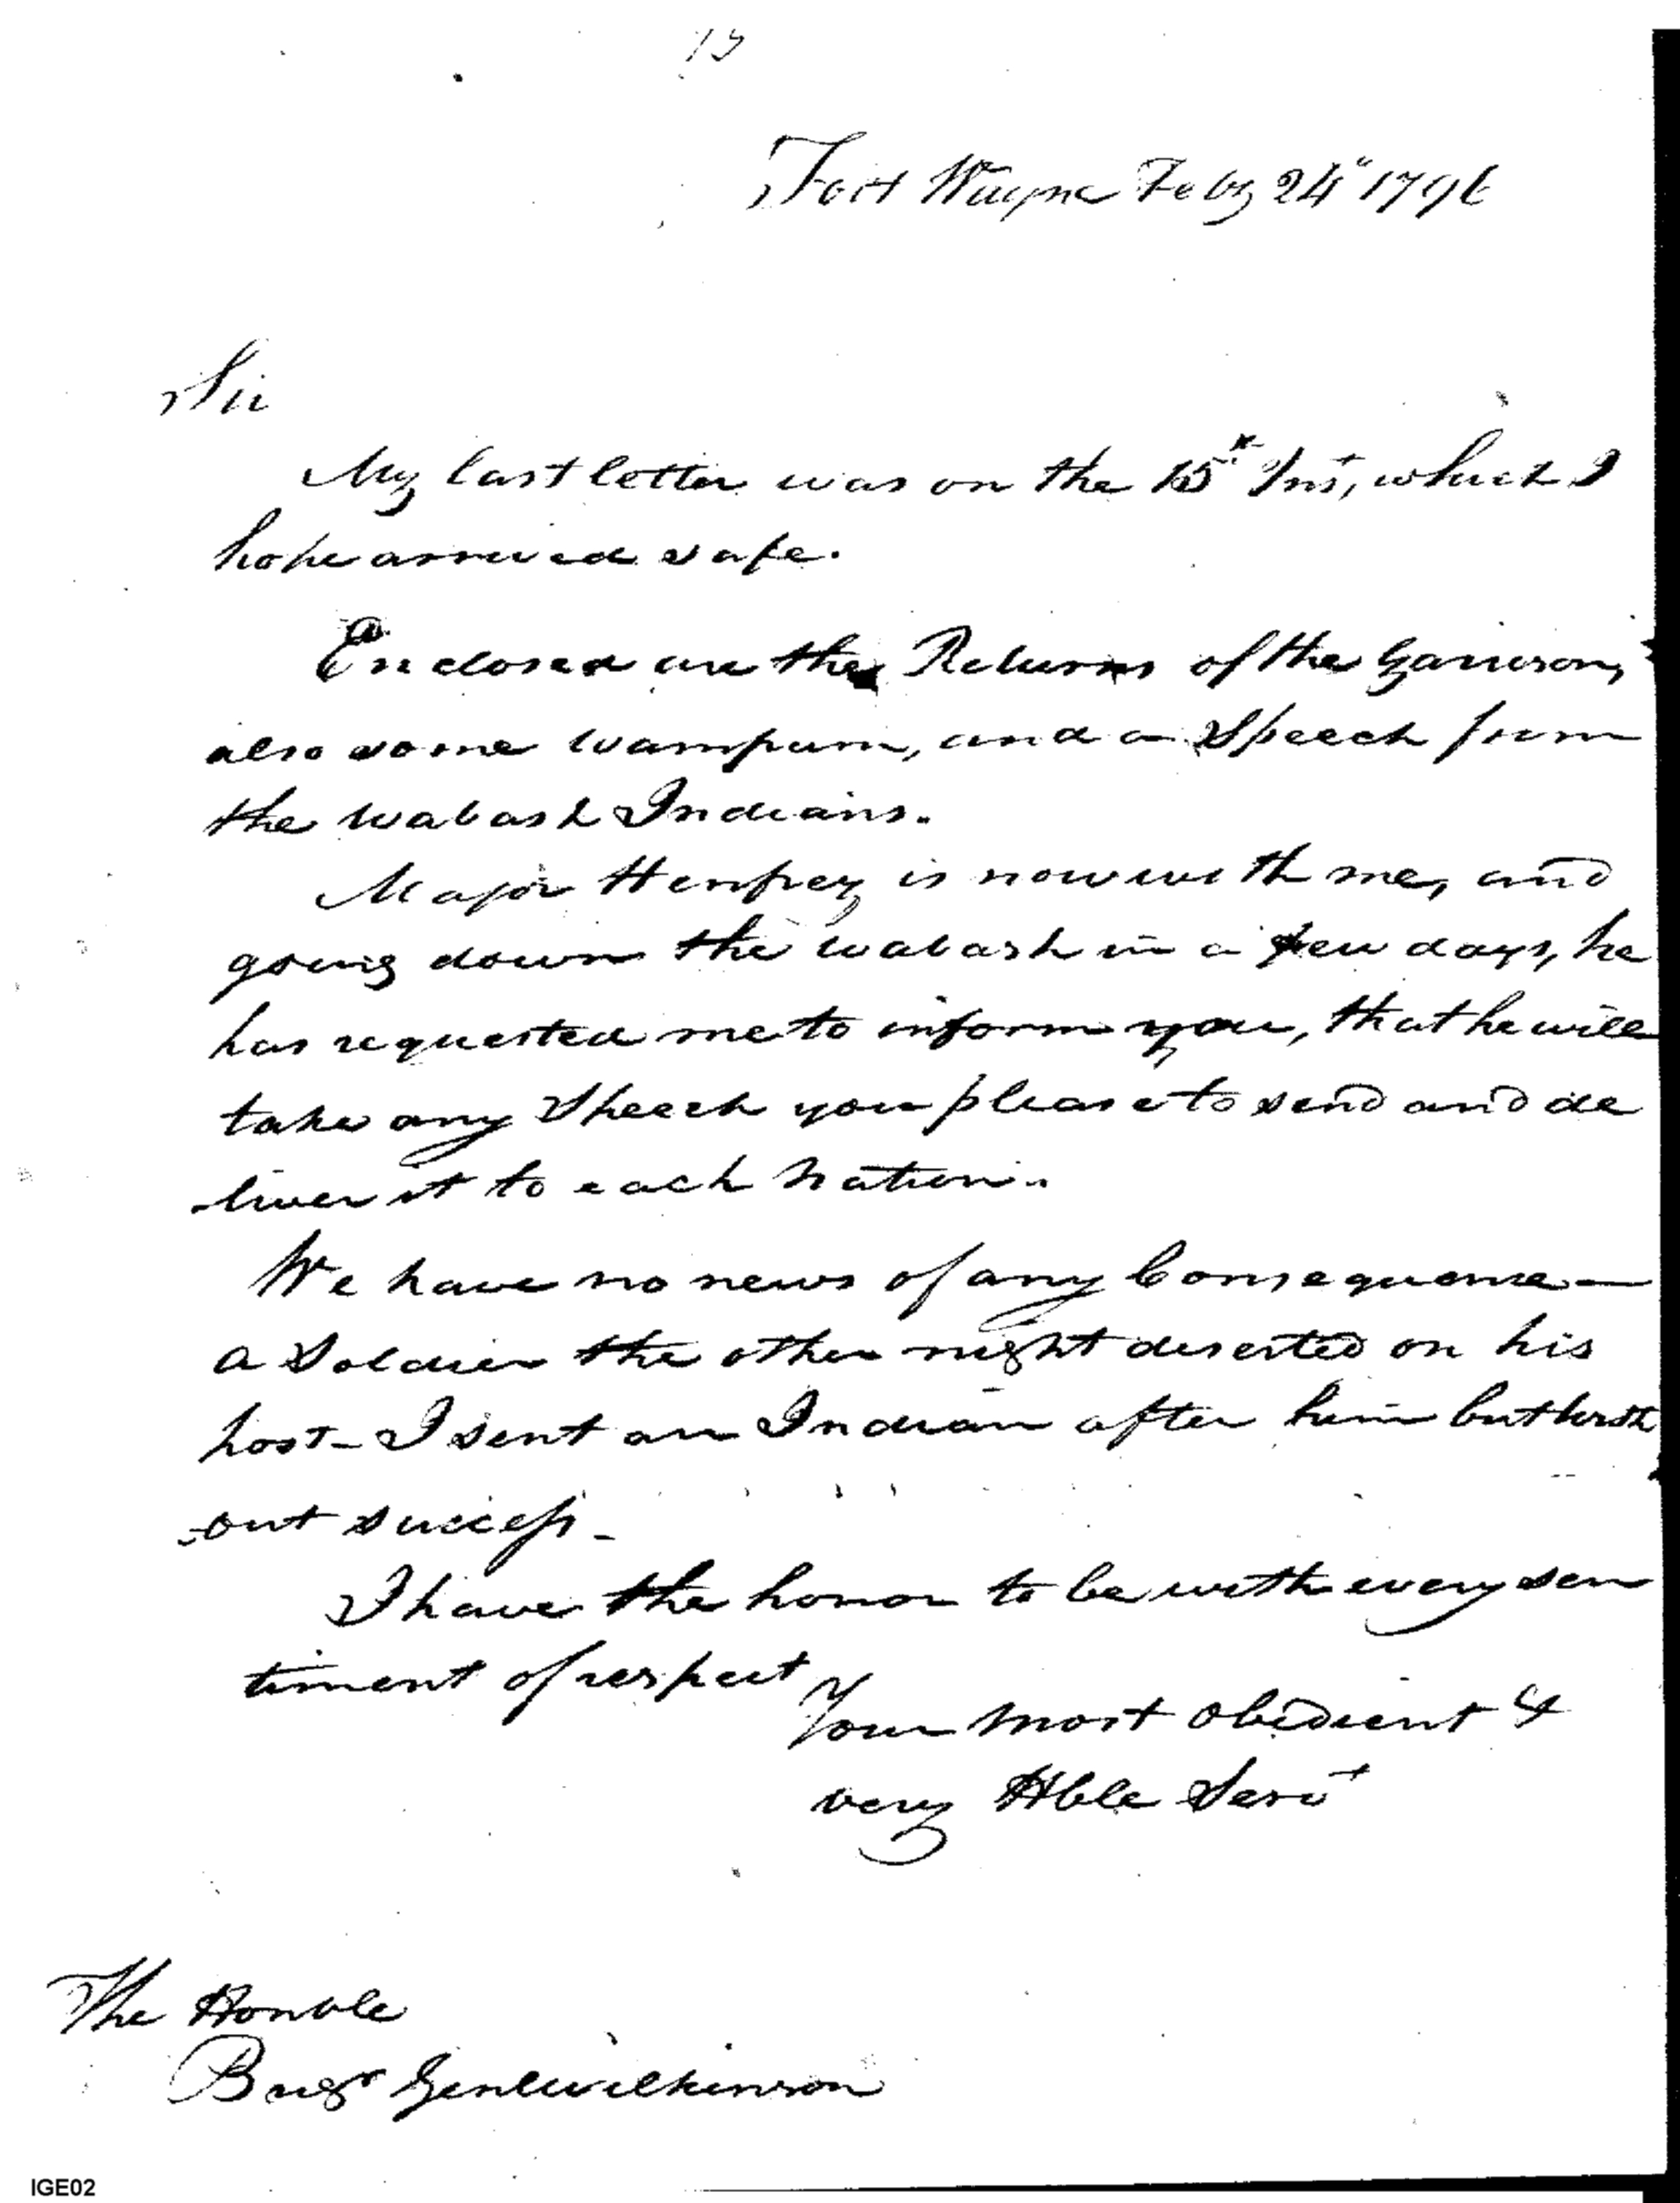 Fort Wayne Feby 24" 1796
Sir
My last letter was on the 15th Inst, which I
hope arrived safe.
Enclosed are the Returns of the Garrison,
also some wampum, and a Speech from
the wabash Indians.
Major Henfrey is now with me, and
going down the wabash in a few days, he
has requested me to inform you, that he will
take any Speech you please to send and de
liver it to each Nation.
We have no news of any Consequence—
a Soldier the other night deserted on his
post— I sent an Indian after him but with
out success—
I have the honor to be with every sen
timent of respect
Your most obedient &
very Hble Servt
The Honble
Brigr Genl Wilkinson
IGE02